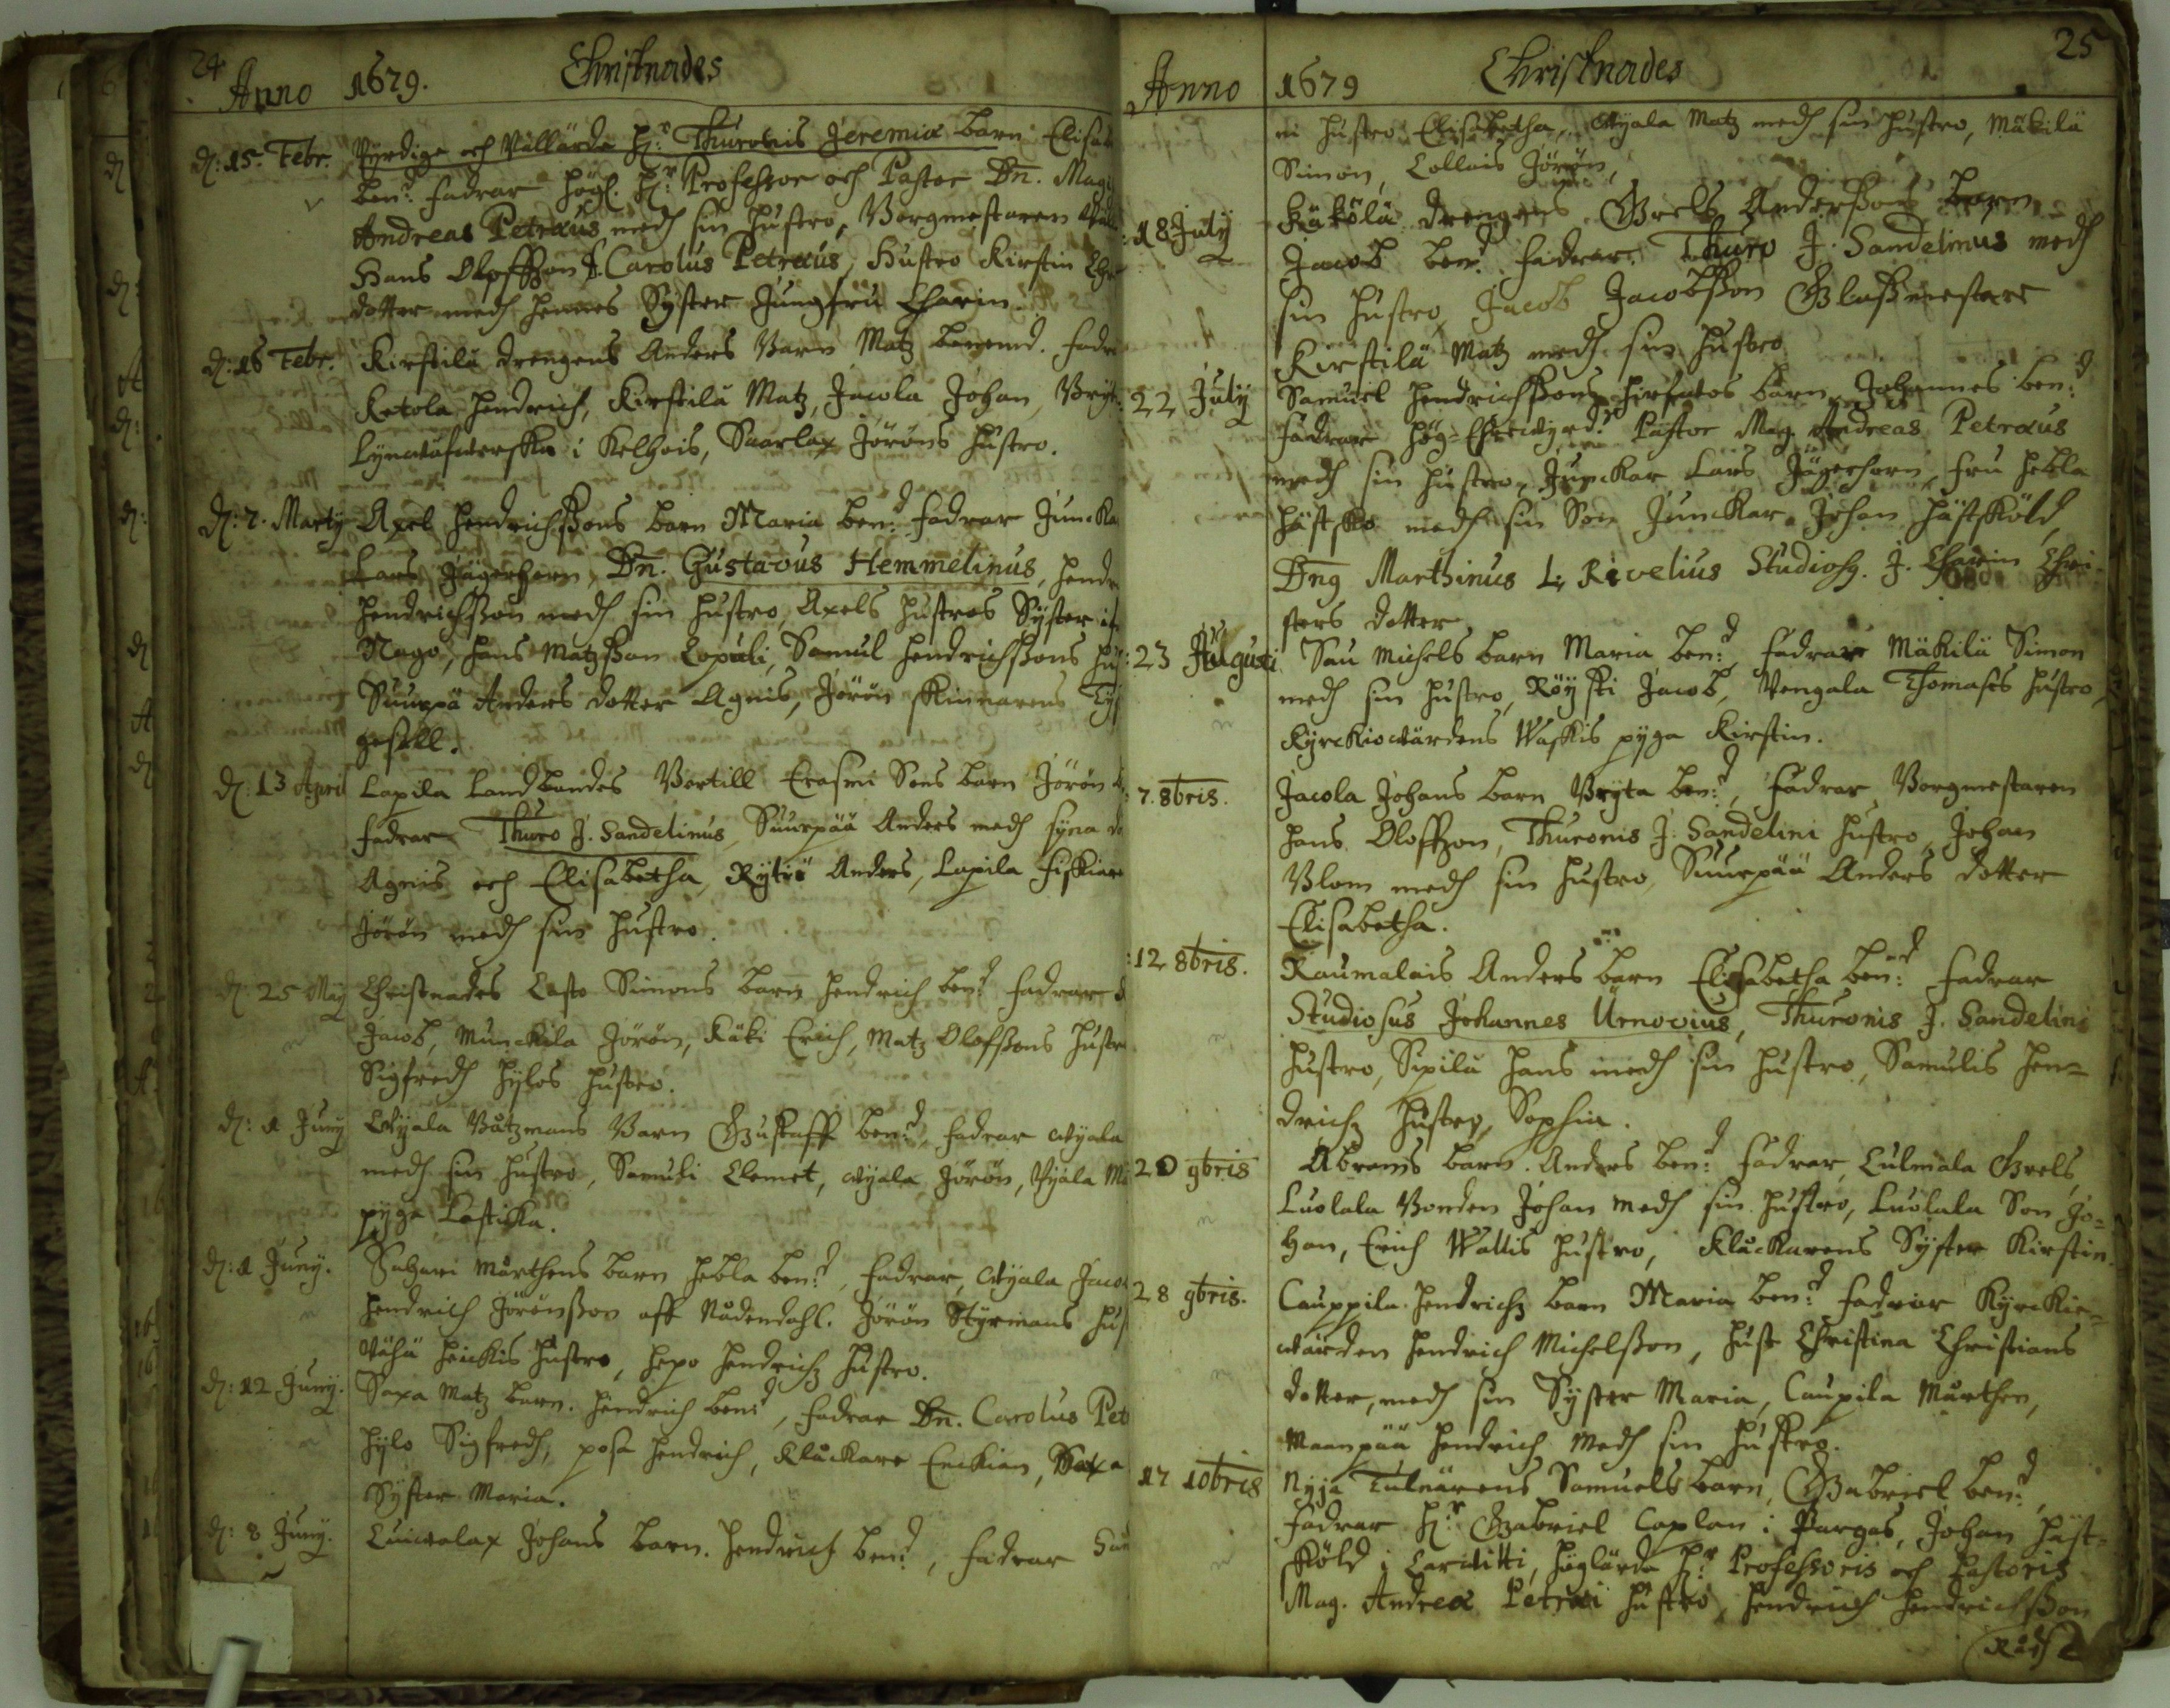 24
Anno 1679. Christnades
d: 15. Febr. Wyrdige och Wällärda H:r Thuronis Jeremiæ barn Elisa
ben:d fadrar Högl. H:r Professor och Pastor Dn. Mag
Andreas Petræus medh sin hustro, Borgmestaren
Hans Olofsson D. Carolus Petræus, Hustro Kirstin Chr
dotter medh hennes Syster Jungfru Charin.
d: 16 Febr. Kirstilä drengens Anders Barn Matz benemd. fadr
Ketola Hendrich, Kirstilä Matz, Jacola Johan,
i Kelhois, Saarlax Jöröns hustro.
d: 7. Marty Axel Hendrichssons barn Maria ben:d fadrar Juncka
Lars Jägerhorn, Dn. Gustavus Hemmelinus, Hend
Hendrichsson medh sin hustro, Axels hustros Syster i
Nago, Hans Matzsson Lopuli, Samul Hendrichssons hu
Suurpä Anders dotter Agnis, Jörön skinnarens
gesell.
d: 13 April Lapila Landbondes Bertill Erasmi Sons barn Jörön
fadrar Thuro J. Sandelinus, Suurpää Anders medh syna dö
Agnis och Elisabetha, Rytiö Anders, Lapila fiskiare
Jörön medh sin hustro.
d: 25 May Christnades Casto Simons barn Hendrich ben:d fadrar
Jacob, Munckila Jörön, Käki Erich, Matz Olofssons hustr
Sigfredh Hylös hustro.
d: 1 Juny Wyala Båtzmans Barn Gustaff ben:d, fadrar Wyala
medh sin hustro, Samuli Clemet, Wyala Jörön, Wyala Ma
pyga
d: 1 Juny. Sahari Mårthens barn Hebla ben:d, fadrar, Wyala Jaco
Hendrich Jörönsson aff Nådendahl. Jörön Styrmans hus
Vähä Heickis hustro, Hepo Hendrichz hustro.
d: 12 Juny. Saxa Matz barn. Hendrich ben:d, fadrar Dn. Carolus Pet
Hylo Sigfredh, posa Hendrich, Klåckare Enckian, Saxa
Syster Maria.
d: 8 Juny. Luicalax Johans barn. Hendrich ben:d, fadrar
25
Anno 1679 Christnades
ni hustro Elisabetha, Wyala Matz medh sin hustro, Mäkilä
Simon, Collais Jörön,
18 July Käkölä drengens Grels Anderssons barn
Jacob ben:d fadrar. Thuro J. Sandelinus medh
sin hustro, Jacob Jacobsson Glassmestare
Kirstilä Matz medh sin hustro
22 July Samuel Hendrichssons barn, Johannes ben:d
fadrar Hög-Ehrewyrd: Pastor Mag. Andreas Petræus
medh sin hustro, Junckar Lars Jägerhorn, fru Hebla
Hästsko medh sin Son Junckar Johan Hästsköld,
Dng Marthinus L. Rivelius Studiosq. J. Charin Chri
sters dotter.
23 Augusti Sau Michels barn Maria ben:d, fadrar Mäkilä Simon
medh sin hustro, Röyski Jacob, Vengala Thomases hustro,
Kyrckiowärdens Waskis pyga Kirstin.
7. 8bris. Jacola Johans barn Bryta ben:d, fadrar Borgmestaren
Hans Olofsson, Thuronis J. Sandelini hustro, Johan
Blom medh sin hustro, Suurpää Anders dotter
Elisabetha.
12 8bris. Raumalais Anders barn Elisabetha ben:d fadrar
Studiosus Johannes Urnovius, Thuronis J. Sandelini
hustro, Sipilä Hans medh sin hustro, Samulis Hen=
drichz hustro, Sophia.
20 9bris Abrams barn. Anders ben:d fadrar, Culmala Grels,
Luolala Bonden Johan medh sin hustro, Luolala Son Jo=
han, Erich Wallis hustro, Klåckarens Syster Kirstin.
28 9bris. Cauppila Hendrichz barn Maria ben:d fadrar Kyrckie=
wärden Hendrich Michelsson, hust Christina Christians
dotter, medh sin Syster Maria, Caupila Mårthen,
Maanpää Hendrich Medh sin hustro.
17 10bris Nyja Tulnärens Samuels barn, Gabriel ben:d,
fadrar H:r Gabriel Caplan i Pargas, Johan Häst=
sköld i Carvitti, Höglärda H:r Professoris och Pastoris
Mag. Andreæ Petræi hustro, Hendrich Hendrichsson
Rådh